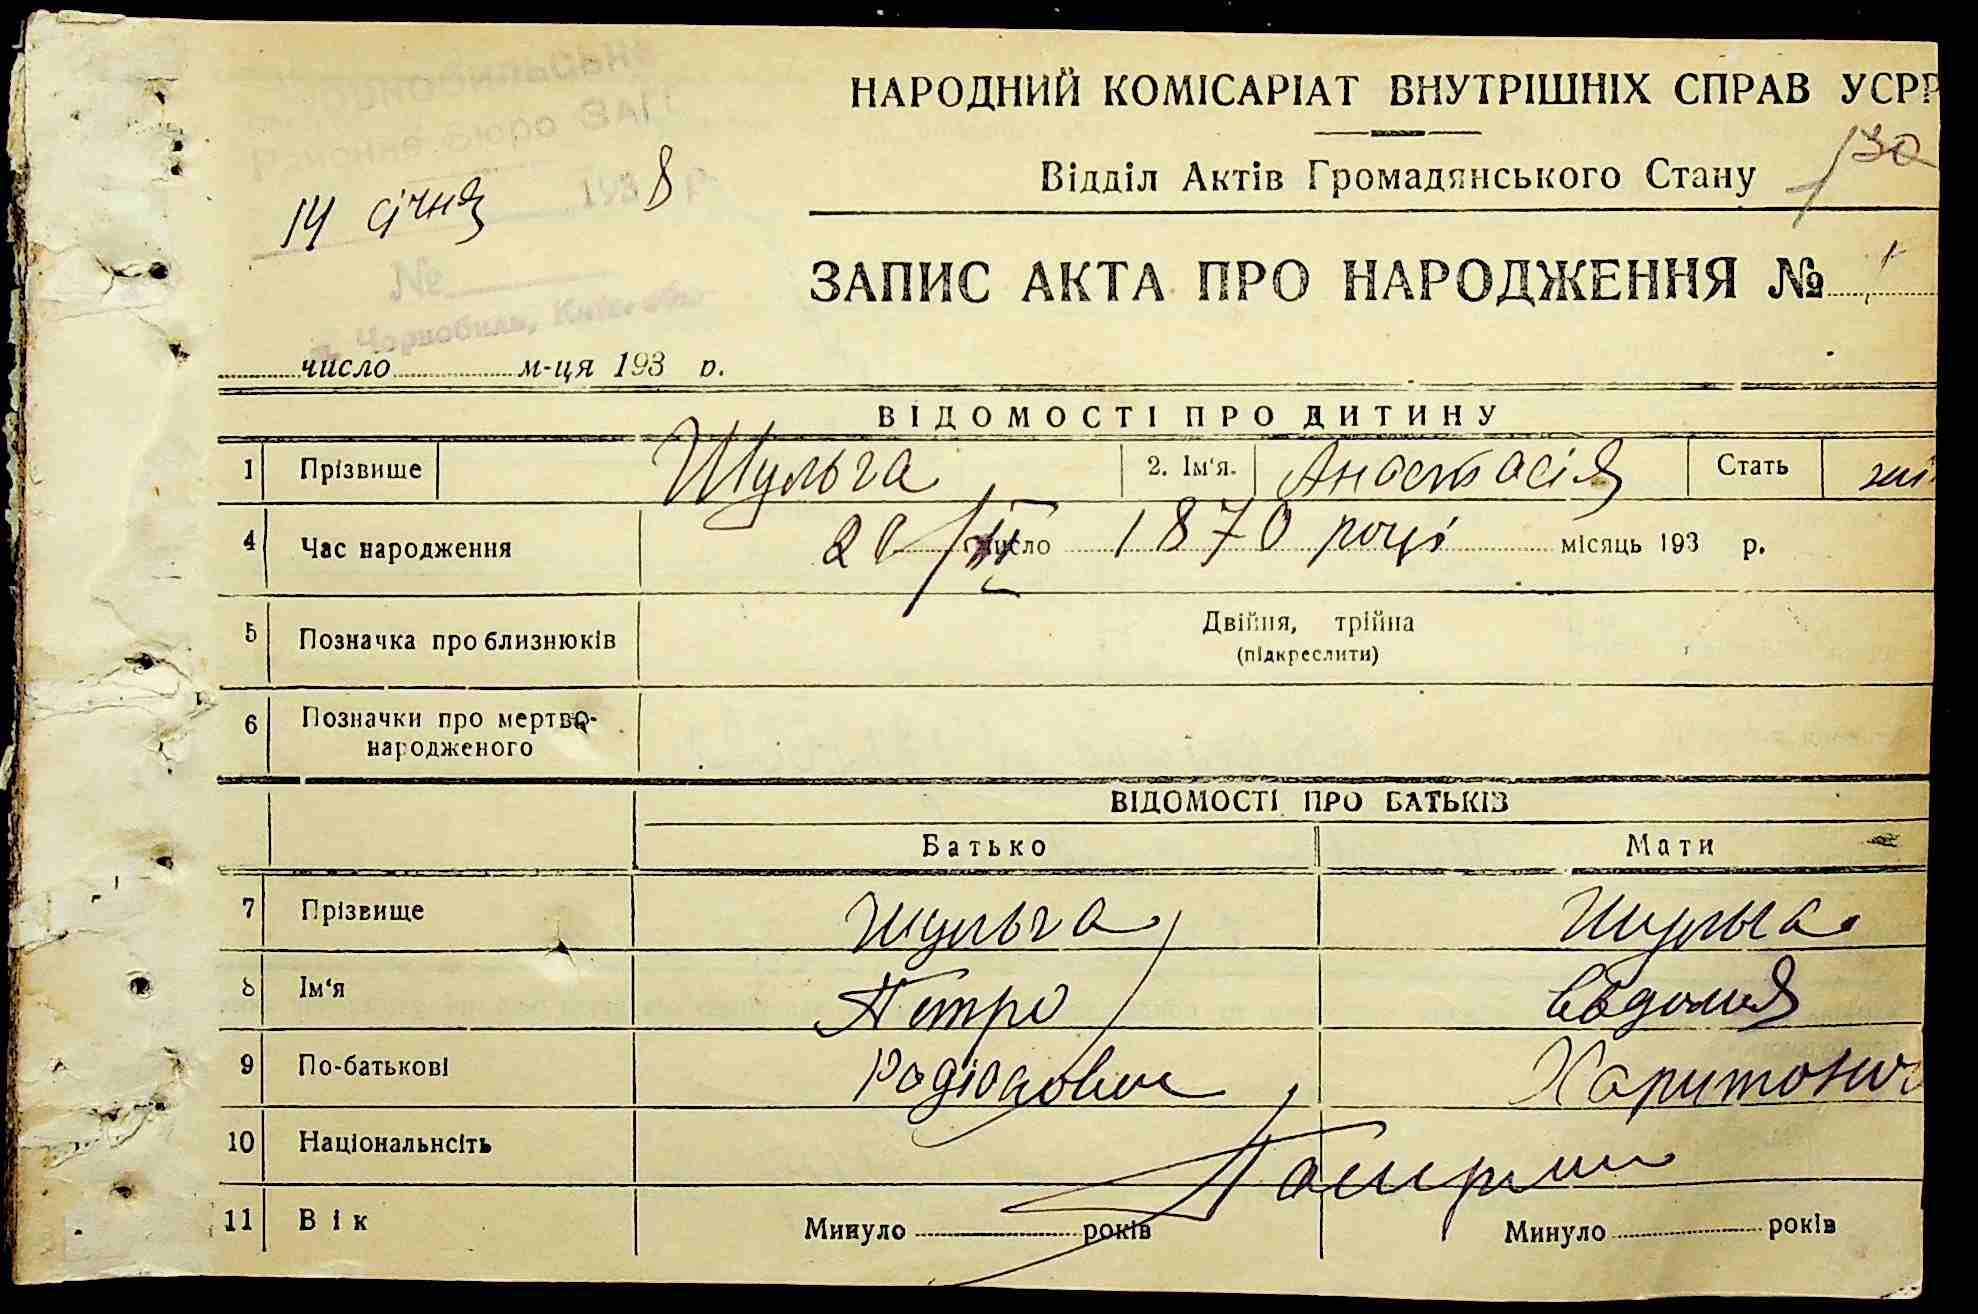 Чорнобильське
Районне Бюро ЗАГС
14 січня 1938 р.
№
м. Чорнобиль, Київ. обл.
НАРОДНИЙ КОМІСАРІАТ ВНУТРІШНІХ СПРАВ УСРР
130
Відділ Актів Громадянського Стану
ЗАПИС АКТА ПРО НАРОДЖЕННЯ №
число м-ця 193 р.
ВІДОМОСТІ ПРО ДИТИНУ
1 Прізвище Шульга 2. Ім'я. Анастасія Стать жі
4 Час народження 20 число 1870 році місяць 193 р.
5 Позначка про близнюків Двійня, трійна
(підкреслити)
6 Позначки про мертво-
народженого
ВІДОМОСТІ ПРО БАТЬКІВ
Батько Мати
7 Прізвище Шульга Шульга
8 Ім'я Петро Євдокія
9 По-батькові Родіонович Харитонов
10 Національність
11 Вік Минуло років Минуло років